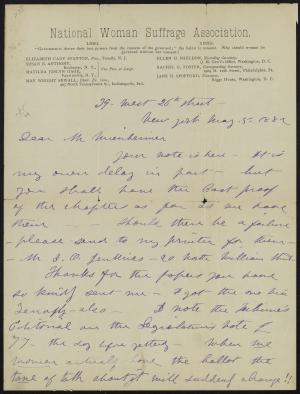 National Woman Suffrage Association.
"Governments derive their just powers from the consent of the governed;" the ballot is consent. Why should woman be governed without her consent?
ELIZABETH CADY STANTON, Pres., Tenafly, N. J.
SUSAN B. ANTHONY,
Rochester, N. Y.,
MATILDA JOSLYN GAGE, Vice Pres. at Large.
Fayetteville, N. Y.,
MAY WRIGHT SEWALL,
Indianapolis, Ind.
ELLEN H. SHELDON, Recording Secretary,
Washington, D. C.
RACHEL G. FOSTER, Corresponding Secretary,
Philadelphia, Pa.
JANE H. SPOFFORD, Treasurer,
Riggs House, Washington, D. C.
39 West 26th street -
New York May 5, 1882
Dear Mr
Your note is here - It is
my own delay in part - but
you shall have the last proof
of the chapter as far as we have
them - should there be a failure
- please send to my printer for them
- Mr. J. O. Jenkins - 20 North William St.
Thanks for the papers you have
so kindly sent me - I got the one in
Tenafly - also - I note the Tribune's
Editorial on the Legislature's vote of
77 - the day before yesterday - when we
women actually have the ballot the
tone of talk about it will suddenly change!!